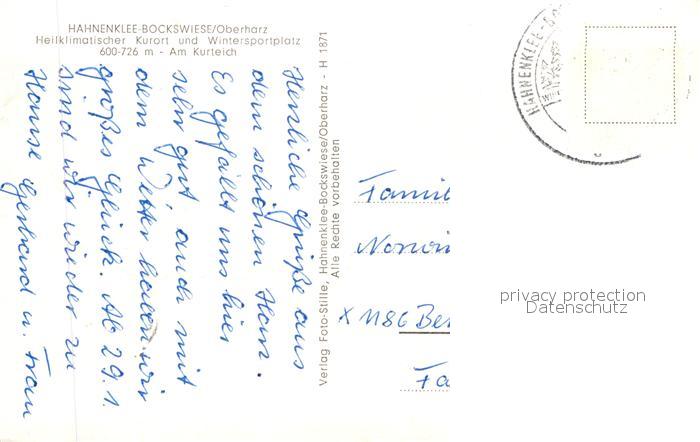 HAHNENKLEE-BOCKSWIESE/Oberharz
Heilklimatischer Kurort und Wintersportplatz
600-726 m - Am Kurteich
Herzliche Grüße aus
dem schönen Harz.
Es gefällt uns hier
sehr gut auch mit
dem Wetter haben wir
großes Glück. Ab 29.1.
sind wir wieder zu
Hause Gerhard u. Frau
Verlag Foto-Stille, Hahnenklee-Bockswiese/Oberharz - H 1871
Alle Rechte vorbehalten
HAHNENKLEE-BO
Famil
X 1186 Ber
privacy protection
Datenschutz